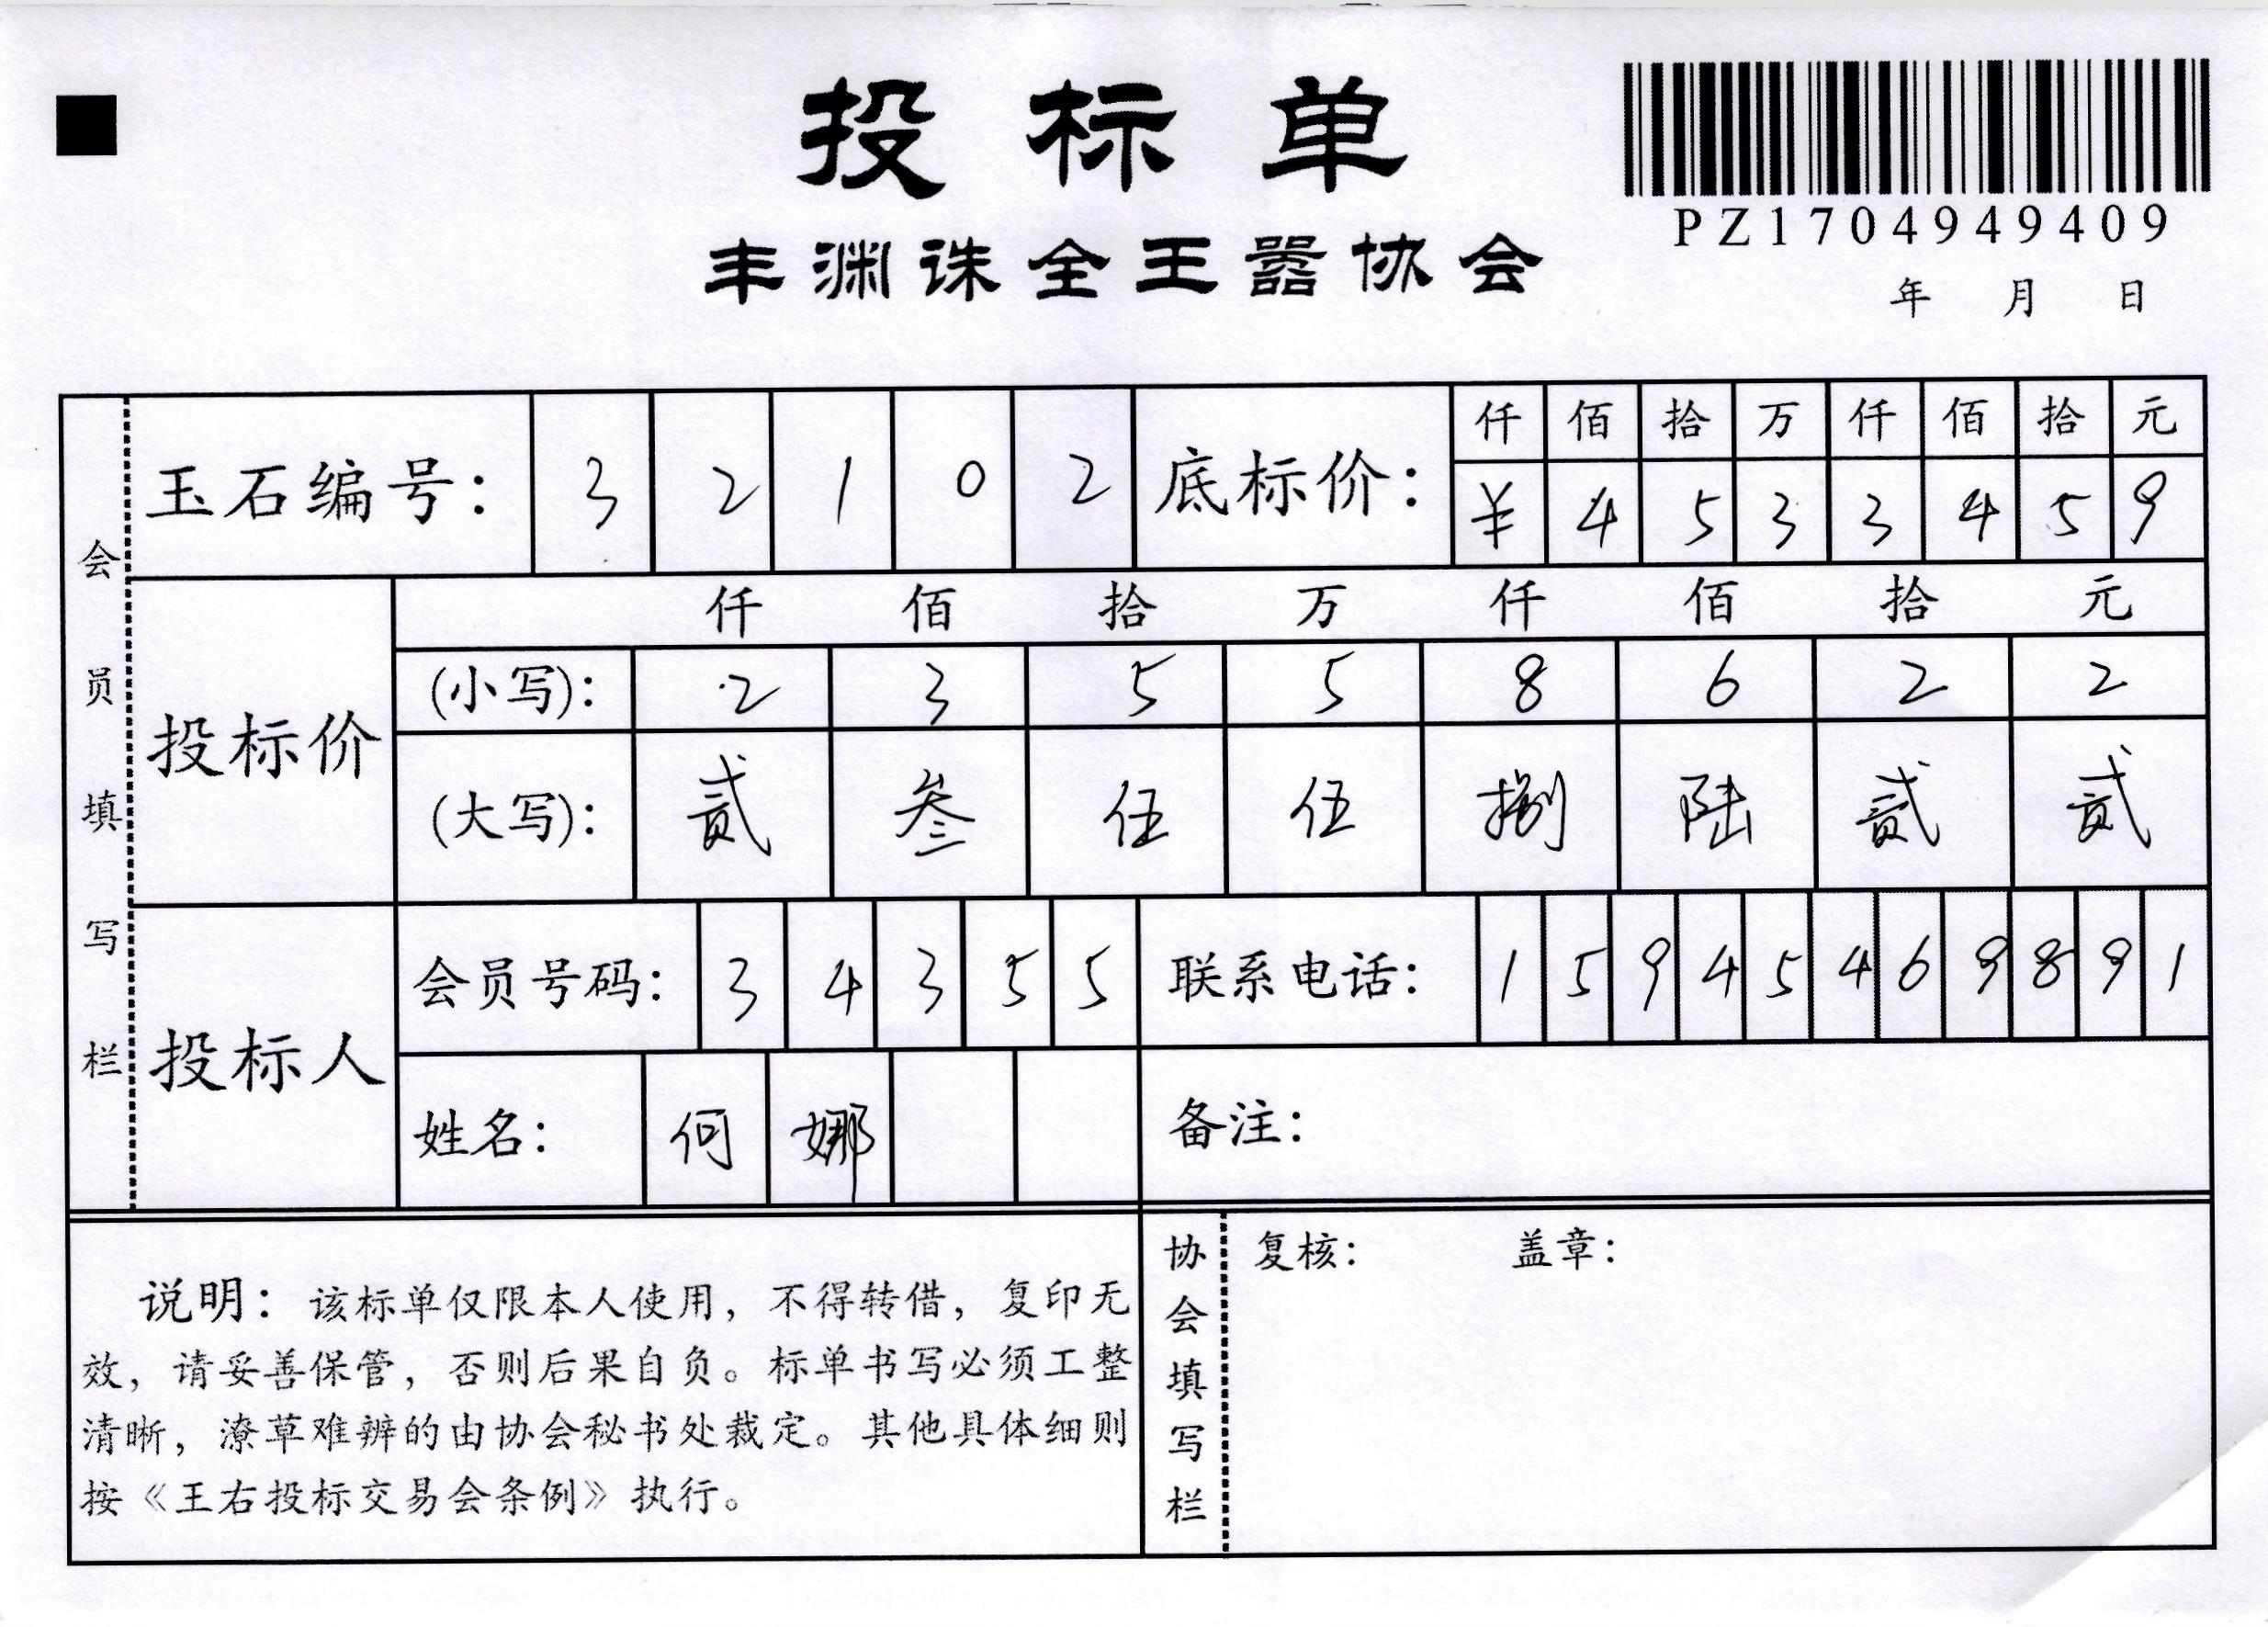 投标单
PZ1704949409
丰渊诛全王嚣协会
年 月 日
会员填写栏
玉石编号： 3 2 1 0 2 底标价： 仟 佰 拾 万 仟 佰 拾 元
¥ 4 5 3 3 4 5 9
投标价 仟 佰 拾 万 仟 佰 拾 元
(小写)： 2 3 5 5 8 6 2 2
(大写)： 贰 叁 伍 伍 捌 陆 贰 贰
投标人 会员号码： 3 4 3 5 5 联系电话： 1 5 9 4 5 4 6 9 8 9 1
姓名： 何 娜 备注：
说明：该标单仅限本人使用，不得转借，复印无
效，请妥善保管，否则后果自负。标单书写必须工整
清晰，潦草难辨的由协会秘书处裁定。其他具体细则
按《王右投标交易会条例》执行。
协会填写栏
复核： 盖章：